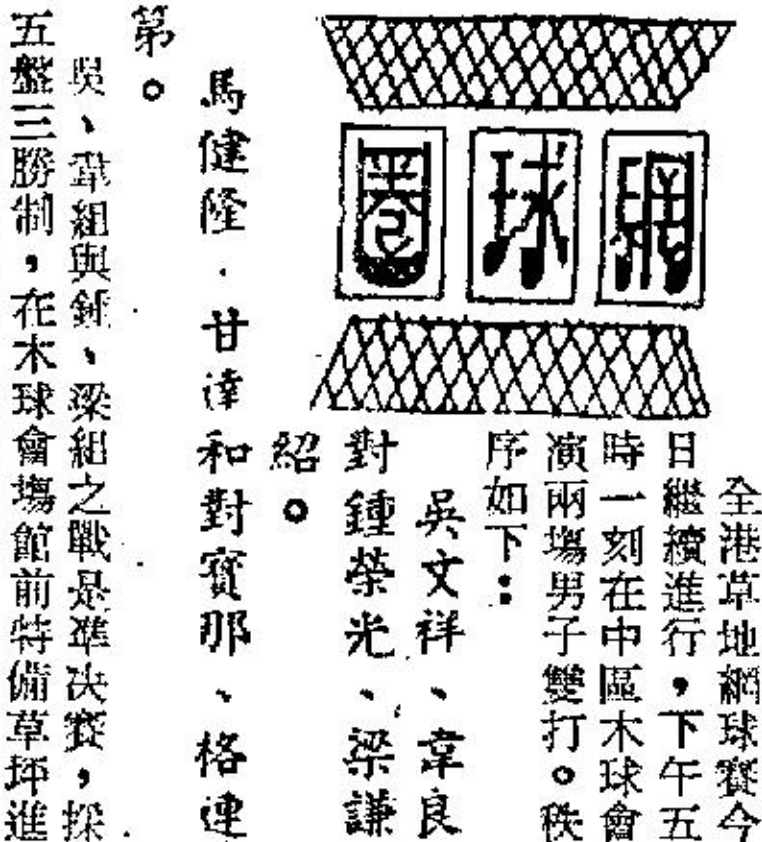 網球圈
全港草地網球賽今
日繼續進行，下午五
時一刻在中區木球會
演兩塲男子雙打。秩
序如下：
吳文祥、韋良
對鍾榮光、梁謙
紹。
馬健隆．甘達和對寳那、格連
第。
吳、韋組與鍾、梁組之戰是準決賽，採
五盤三勝制，在木球會塲館前特備草坪進